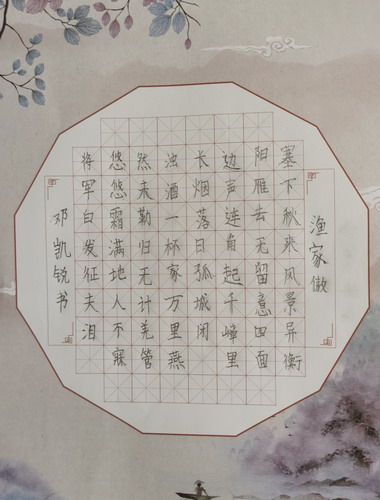 渔家傲
塞下秋来风景异衡
阳雁去无留意四面
边声连角起千嶂里
长烟落日孤城闭
浊酒一杯家万里燕
然未勒归无计羌管
悠悠霜满地人不寐
将军白发征夫泪
邓凯锐书